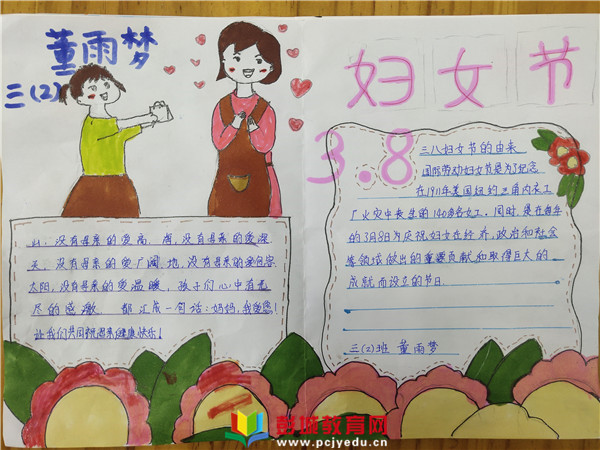 董雨梦
三(2)
妇女节
3.8
山,没有母亲的爱高,
海,没有母亲的爱深
天,没有母亲的爱广阔,地,没有母亲的爱包容
太阳,没有母亲的爱温暖,孩子们心中有无
尽的感激,都汇成一句话:妈妈,我爱您!
让我们共同祝愿母亲健康快乐!
三八妇女节的由来
国际劳动妇女节是为了纪念
在1911年美国纽约三角内衣工
厂火灾中丧生的140多名女工,同时,是在每年
的3月8日为庆祝妇女在经济,政治和社会
等领域做出的重要贡献和取得巨大的
成就而设立的节日.
三(2)班 董雨梦
彭城教育网
www.pcjyedu.cn